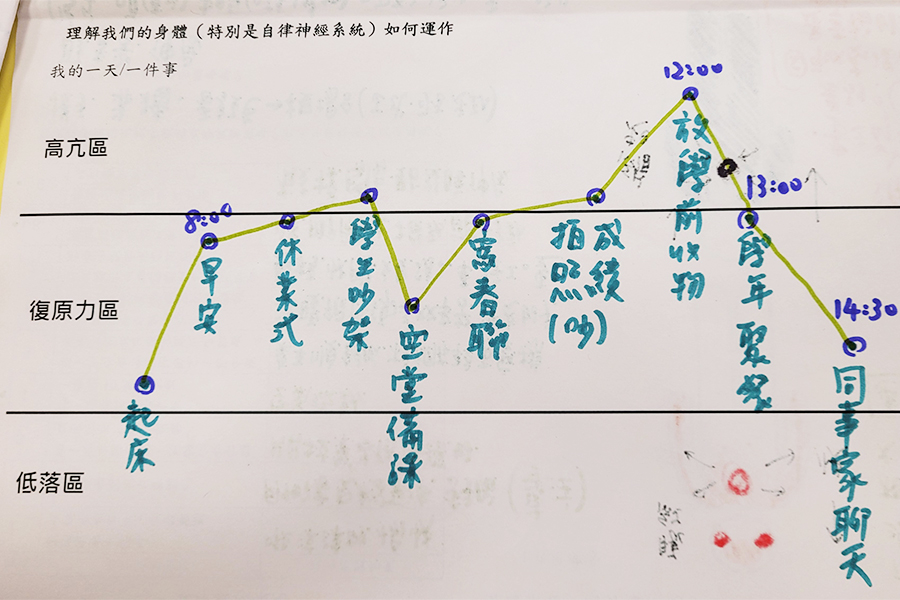 理解我們的身體（特別是自律神經系統）如何運作
我的一天/一件事
高亢區
復原力區
低落區
起床
8:00
早安
休業式
學生吵架
空堂備課
寫春聯
成績
拍照(吵)
12:00
放學前收物
13:00
學年聚餐
14:30
同事家聊天